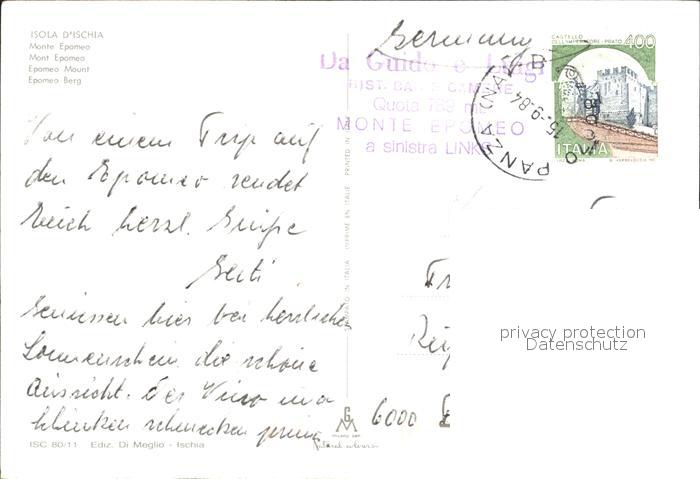 ISOLA D'ISCHIA
Monte Epomeo
Mont Epomeo
Epomeo Mount
Epomeo Berg
Von einem Trip auf
den Epomeo sendet
Euch herzl. Grüße
Genießen hier bei herrlichem
Sonnenschein die schöne
Aussicht. Der Vino und
schmecken prima
ISC 80/11 Ediz. Di Meglio - Ischia
Germania
Da Guido e Luigi
RIST. BAR CAMERE
Quota 789 mt.
MONTE EPOMEO
a sinistra LINKS
PANZA (NA)
15-9.84
CASTELLO
DELL'IMPERATORE - PRATO 400
ITALIA
STAMPATO IN ITALIA IMPRIMÉ EN ITALIE PRINTED IN
6000
privacy protection
Datenschutz